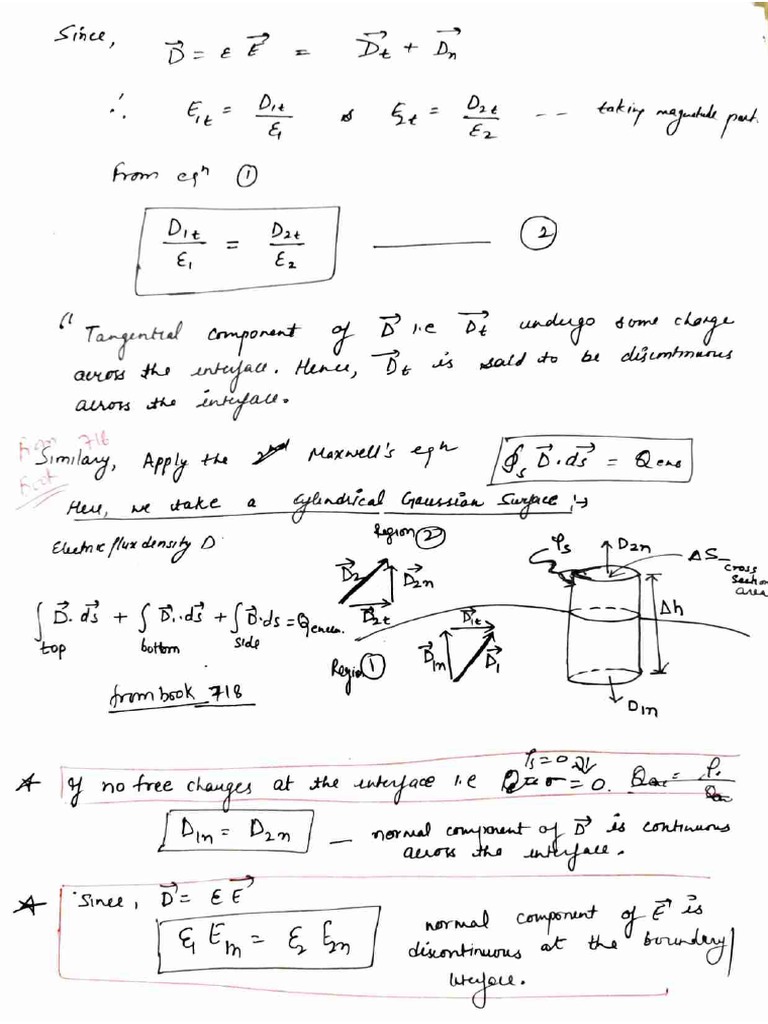 Since, D⃗ = ε E⃗ = D⃗t + D⃗n
∴ E1t = D1t/ε1 & E2t = D2t/ε2 -- taking magnitude part.
From eqn ①
D1t/ε1 = D2t/ε2 ——— ②
" Tangential component of D⃗ i.e D⃗t undergo some change
across the interface. Hence, D⃗t is said to be discontinuous
across the interface.
From 718
Book
Similary, Apply the Maxwell's eqn ∮s D⃗.ds⃗ = Qenc
Here, we take a cylindrical Gaussian Surface :→
Electric flux density D
Region ②
D⃗2
D⃗2n
D⃗2t
ρs
D2n
ΔS_ cross
section
area
Δh
∫top D⃗.ds⃗ + ∫bottom D⃗.ds⃗ + ∫side D⃗.ds =
D⃗1t
D⃗1n
D⃗1
Region ①
D1n
from book_718
ρs = 0
* If no free charges at the interface i.e = 0.
D1n = D2n — normal component of D⃗ is continuous
across the interface.
* Since, D⃗ = ε E⃗
ε1 E1n = ε2 E2n
normal component of E⃗ is
discontinuous at the boundary/
interface.